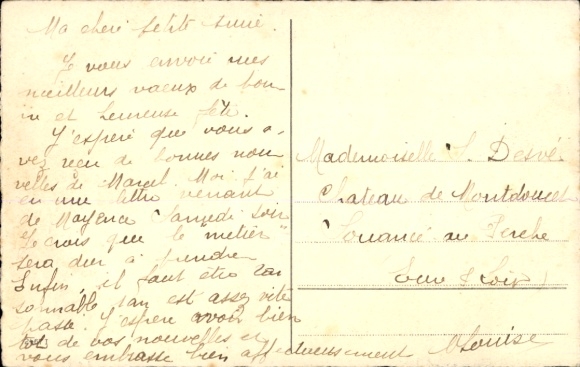 Ma cheri petite amie.
Je vous envoie mes
meilleurs vaeux de bon-
ne et heureuse fête.
J'esperé que vous a-
vez recu de bonnes nou-
velles de Marcel. Moi j'ai
eu une lettre venant
de Mayence Samedi soir
Je crois que le "metier"
sera dur à prendre
Enfin, il faut être rai
sonnable 1 an est assez vite
passé. J'espère avoir bien
tot de vos nouvelles et
vous embrasse bien affectueusement Louise
Mademoiselle S. Desvé
Chateau de Montdoucet
Souancé au Perche
Eure & Loir